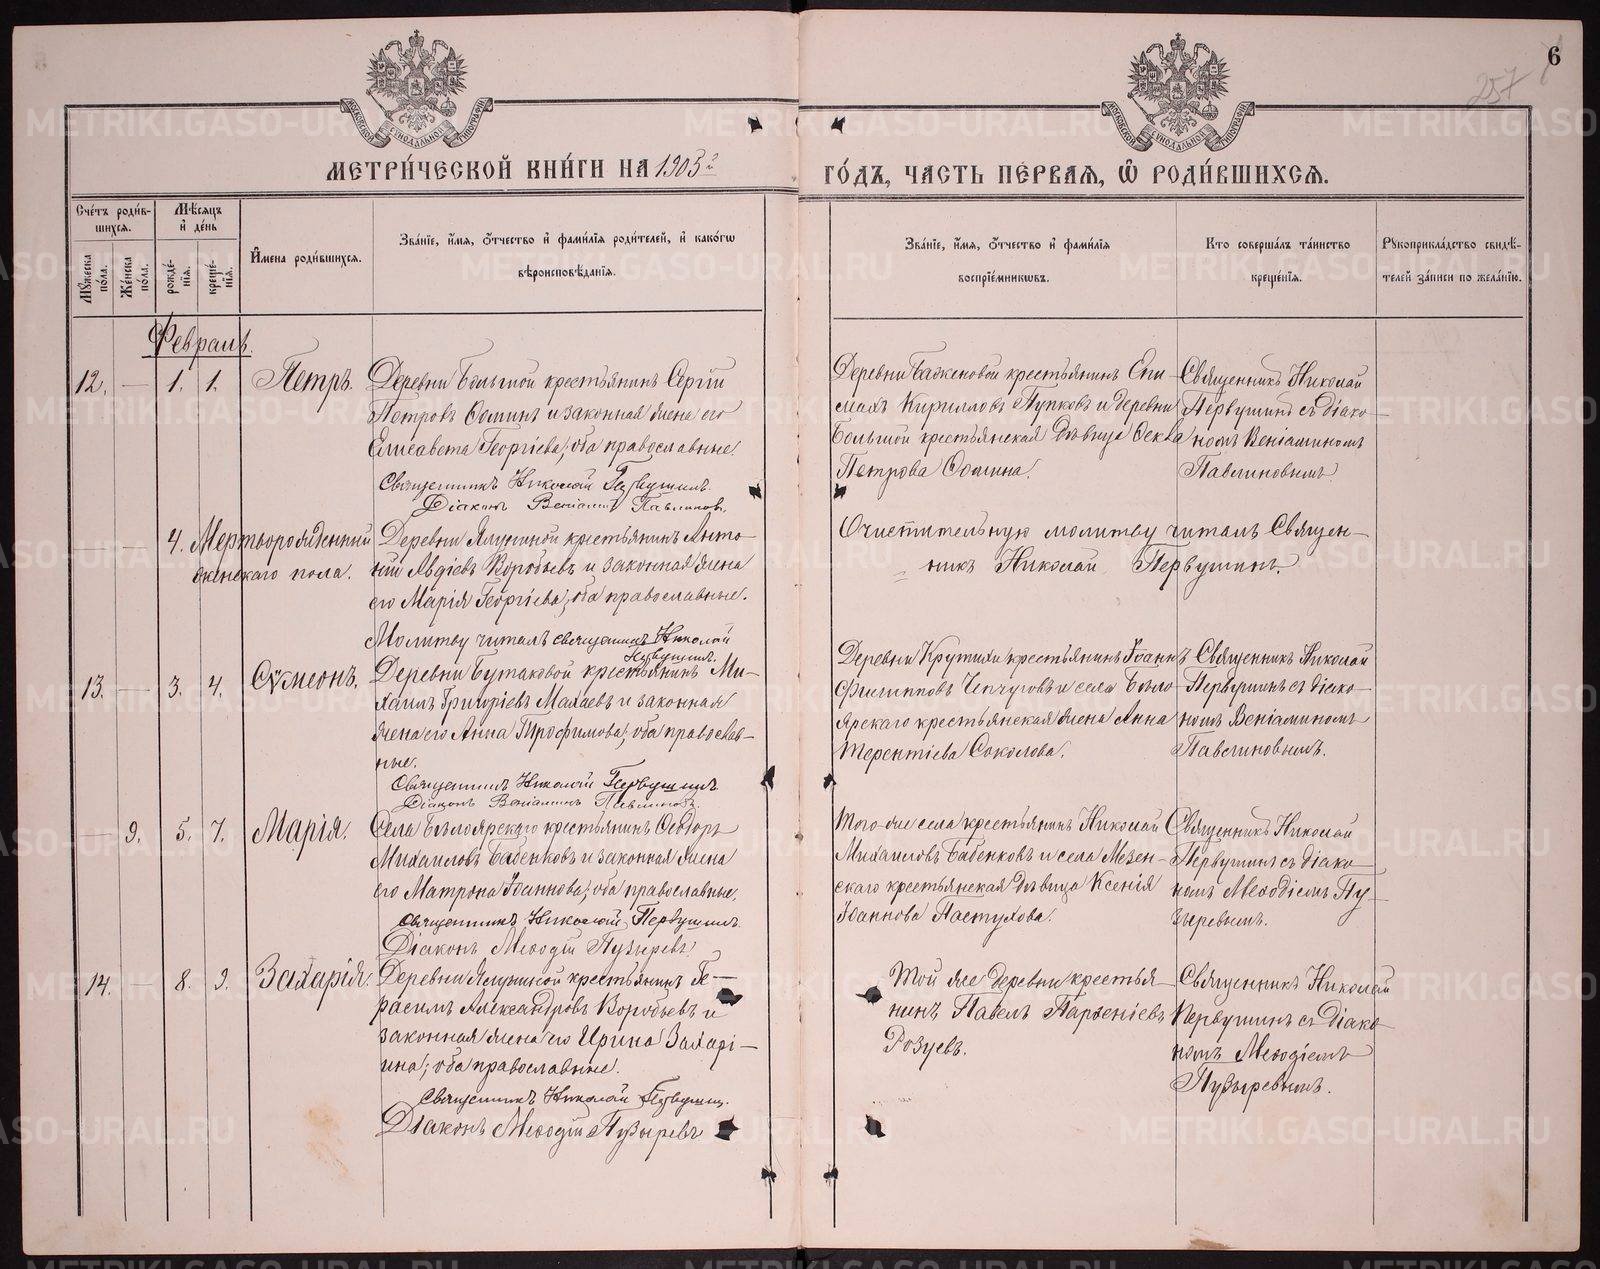 6
257
МОСКОВСКОЙ СѴНОДАЛЬНОЙ ТИПОГРАФІИ
МОСКОВСКОЙ СѴНОДАЛЬНОЙ ТИПОГРАФІИ
МЕТРИ́ЧЕСКОЙ КНИ́ГИ НА 1905й
ГО́ДЪ, ЧАСТЬ ПЕ́РВАЯ, Ѽ РОДИ́ВШИХСЯ.
Сче́тъ роди́в-
шихся.
Мѣ́сяцъ
и҆ де́нь
Мꙋ́жеска
по́ла.
Же́нска
по́ла.
рожде́-
нїя.
креще́-
нїя.
И҆мена роди́вшихся.
Зва́нїе, и҆́мя, ѻ҆́тчество и҆ фами́лїя роди́телей, и҆ како́гѡ
вѣроисповѣ́данїя.
Зва́нїе, и҆́мя, ѻ҆́тчество и҆ фами́лїя
воспрїе́мникѡвъ.
Кто соверша́лъ та́инство
креще́нїя.
Рꙋкоприкла́дство свидѣ́-
телей за́писи по жела́нїю.
Февраль.
12. — 1. 1. Петръ.
Деревни Большой крестьянинъ Сергій
Петровъ Ѳоминъ и законная жена его
Елисавета Георгіева, оба православные.
Священникъ Николай Первушинъ.
Діаконъ Веніаминъ Павлиновъ.
Деревни Баженовой крестьянинъ Епи-
махъ Кирилловъ Пупковъ и деревни
Большой крестьянская дѣвица Ѳекла
Петрова Ѳомина.
Священникъ Николай
Первушинъ съ діако-
номъ Веніаминомъ
Павлиновымъ.
— — 4. Мертворожденный
женскаго пола.
Деревни Ялуниной крестьянинъ Анто-
ній Авдіевъ Воробьевъ и законная жена
его Марія Георгіева, оба православные.
Молитву читалъ священникъ Николай
Первушинъ.
Очистительную молитву читалъ Священ-
никъ Николай Первушинъ.
13. — 3. 4. Сѵмеонъ.
Деревни Бутаковой крестьянинъ Ми-
хаилъ Григорьевъ Махаевъ и законная
жена его Анна Трофимова, оба православ-
ные.
Священникъ Николай Первушинъ
Діаконъ Веніаминъ Павлиновъ.
Деревни Крутихи крестьянинъ Іоаннъ
Филипповъ Чепчуговъ и села Бѣло-
ярскаго крестьянская жена Анна
Терентіева Соколова.
Священникъ Николай
Первушинъ съ діако-
номъ Веніаминомъ
Павлиновымъ.
— 9. 5. 7. Марія.
Села Бѣлоярскаго крестьянинъ Ѳеодоръ
Михаиловъ Бабенковъ и законная жена
его Матрона Іоаннова, оба православные.
Священникъ Николай Первушинъ.
Діаконъ Меѳодій Пузыревъ
Того-же села крестьянинъ Николай
Михаиловъ Бабенковъ и села Мезен-
скаго крестьянская дѣвица Ксенія
Іоаннова Пастухова.
Священникъ Николай
Первушинъ съ діако-
номъ Меѳодіемъ Пу-
зыревымъ.
14. — 8. 9. Захарія.
Деревни Ялуниной крестьянинъ Ге-
расимъ Александровъ Воробьевъ и
законная жена его Ирина Захарі-
ина, оба православные.
Священникъ Николай Первушинъ.
Діаконъ Меѳодій Пузыревъ
Той же деревни крестья-
нинъ Павелъ Парѳеніевъ
Розуевъ.
Священникъ Николай
Первушинъ съ діако-
номъ Меѳодіемъ
Пузыревымъ.